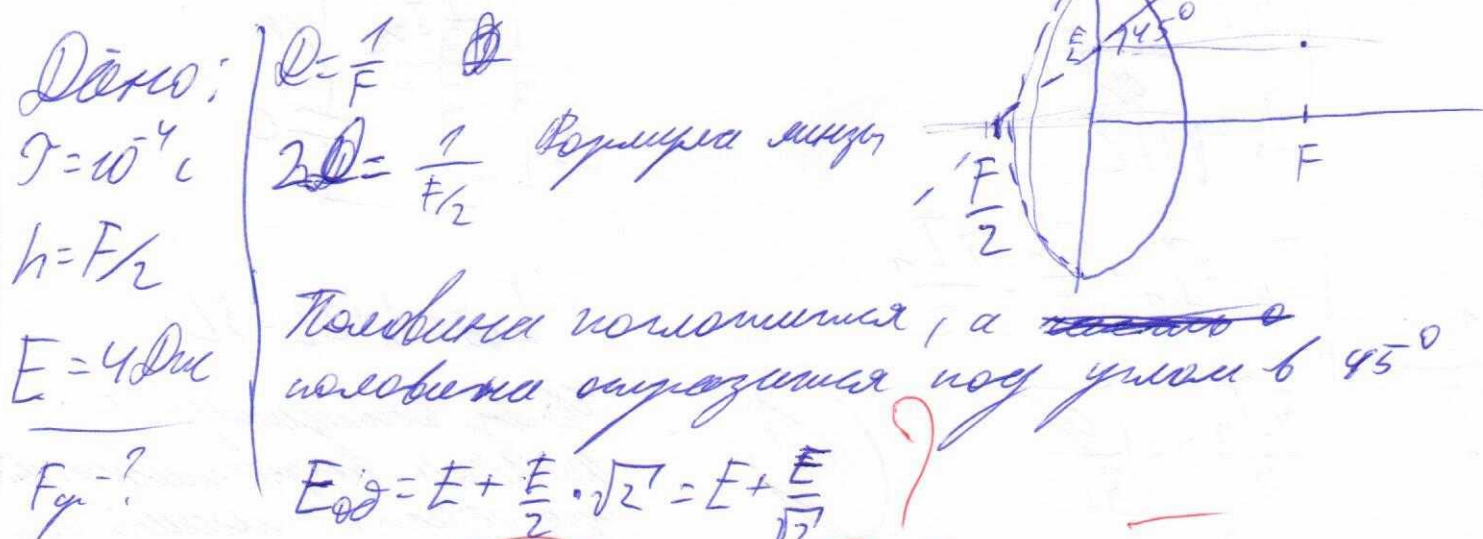 Дано:
T = 10⁻⁴ с
h = F/2
E = 4 Дж
Fср - ?
D = 1/F
2D = 1/(F/2) Формула линзы
Половина поглотится, а
половина отразится под углом в 45°
Eоб = E + E/2 · √2 = E + E/√2
?
E/2 45°
F
F/2